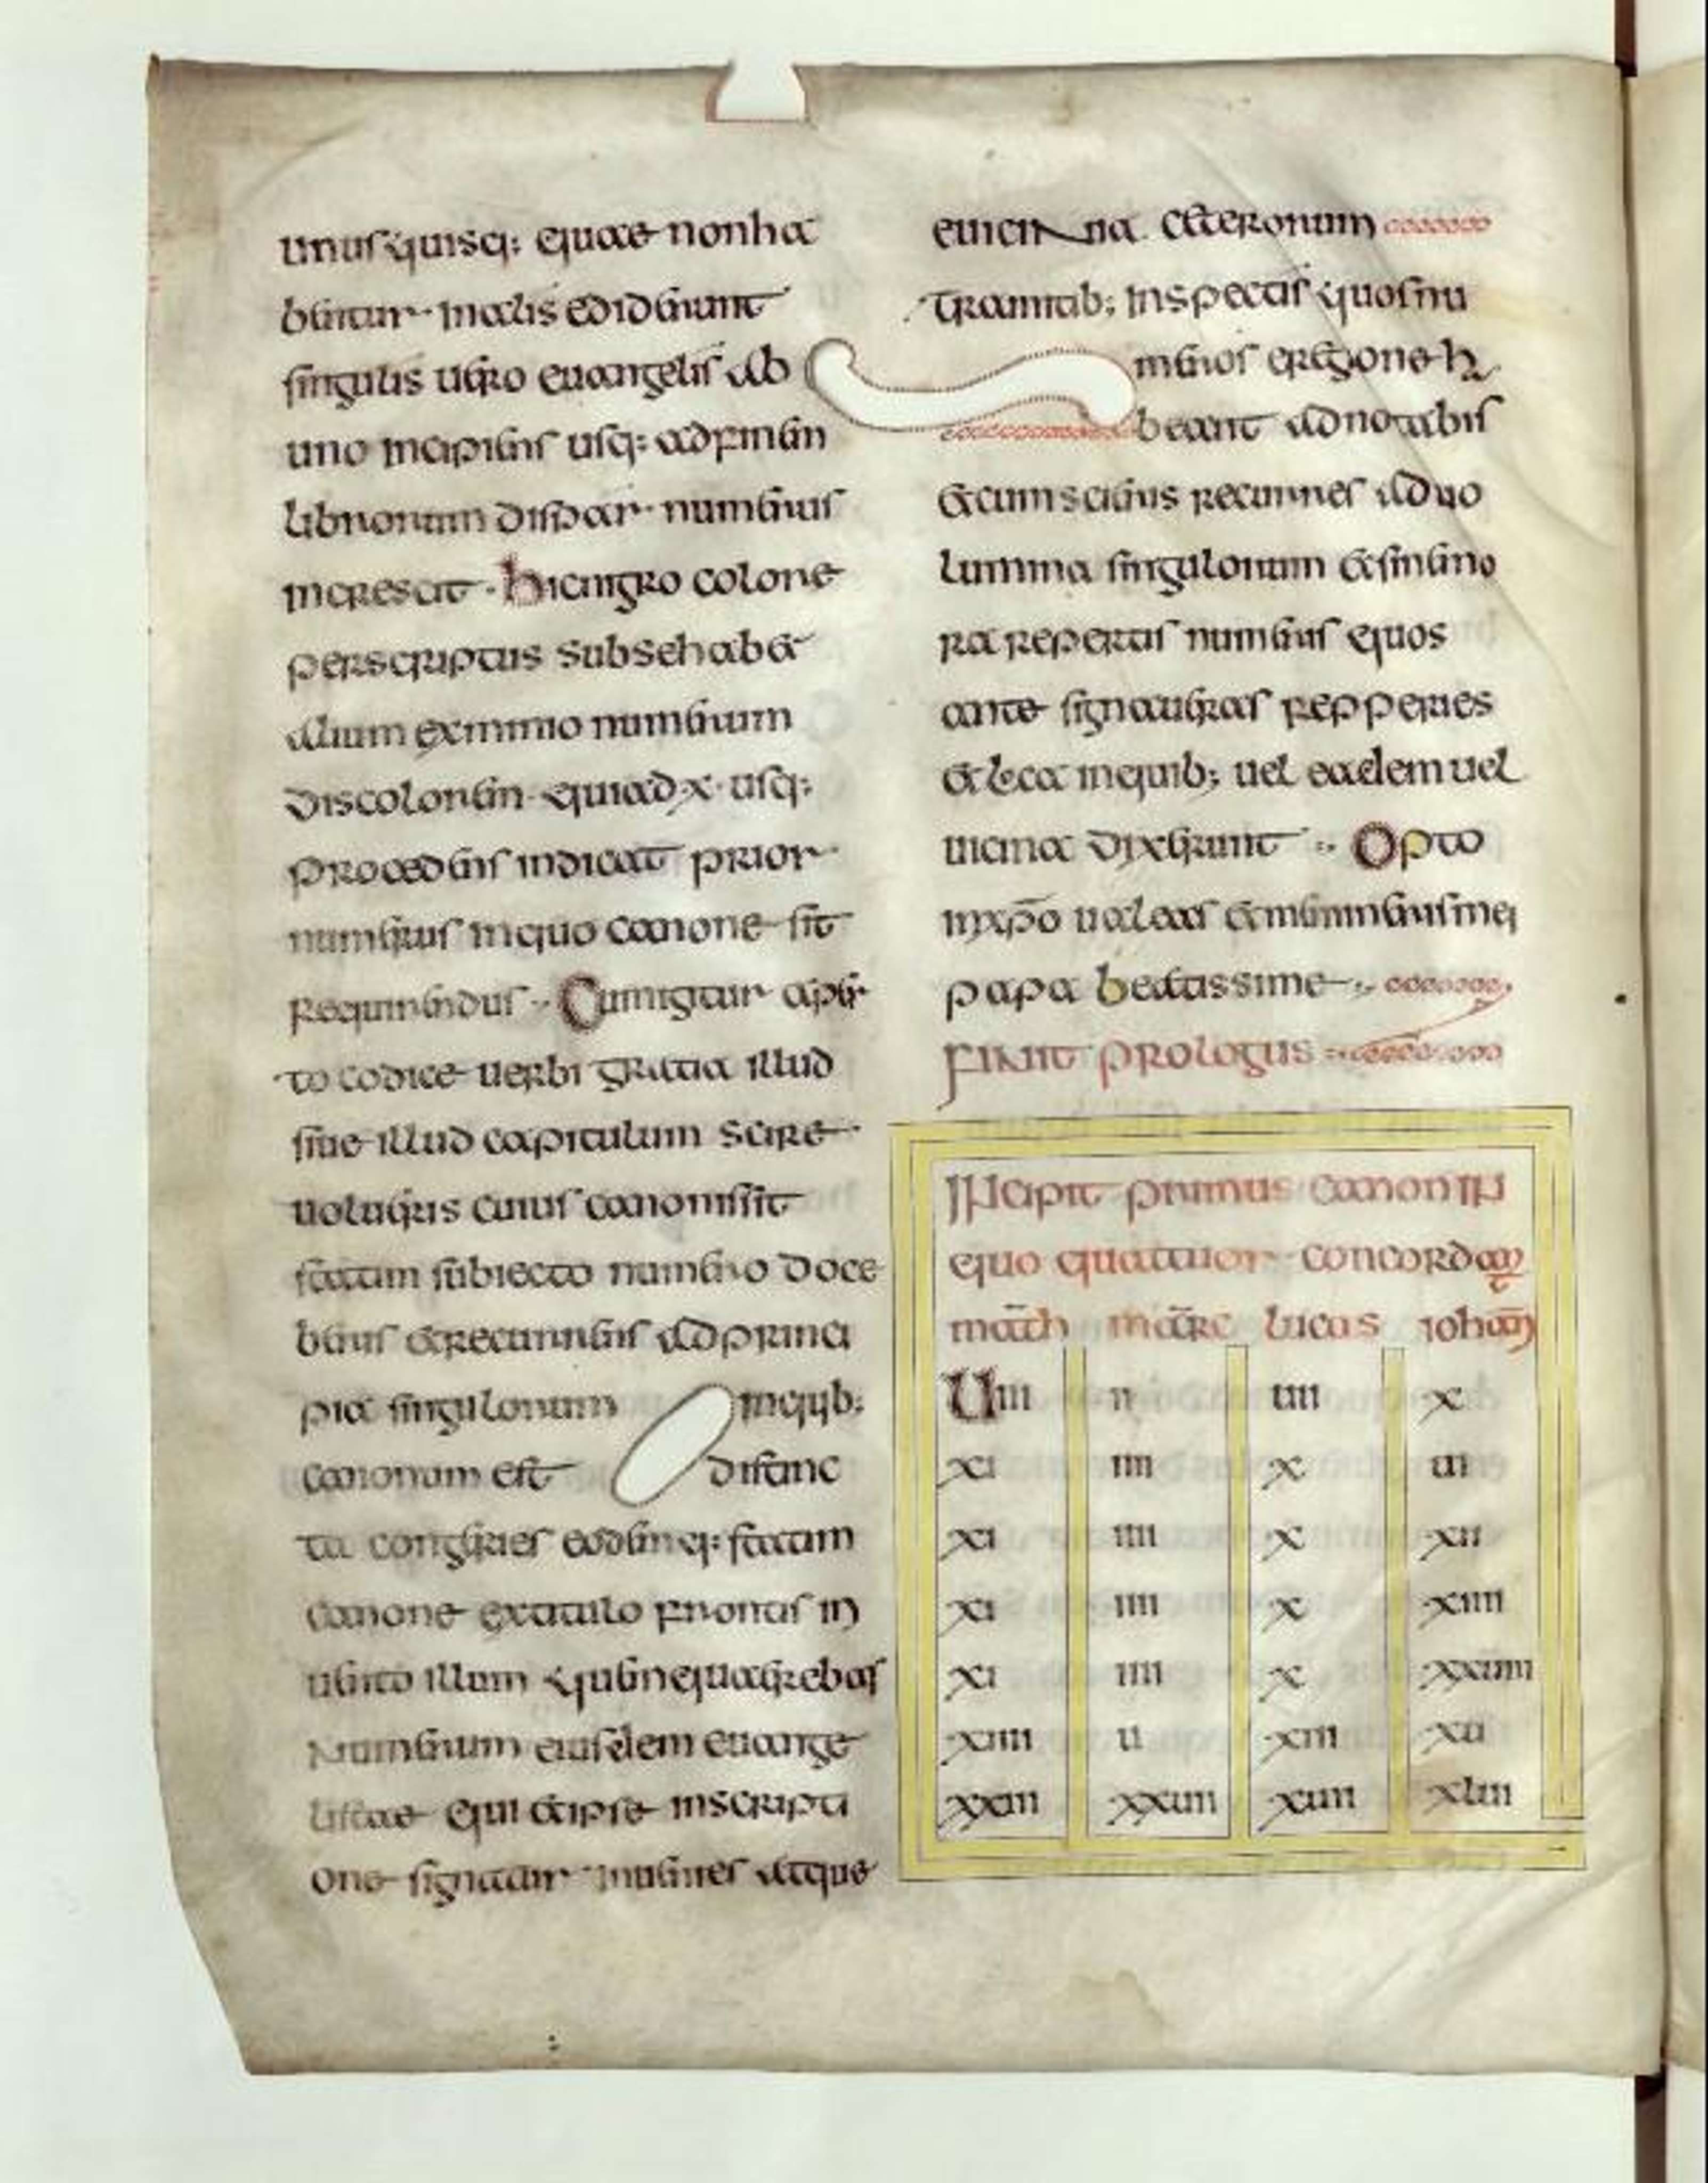 unusquisq: quae non ha
bentur in aliis ediderunt
singulis uero euangeliis ab
uno incipiens usq: ad finem
librorum dispar numerus
increscit · hic nigro colore
perscriptus sub se habet
alium ex minio numerum
discolorem qui ad · x · usq:
procedens indicat prior
numerus in quo canone sit
requirendus · Cum igitur aper
to codice uerbi gratia illud
siue illud capitulum scire
uolueris cuius canonis sit
statim subiecto numero doce
beris et recurrens ad princi
pia singulorum inquib:
canonum est distinc
ta congeries eodemq: statim
canone ex titulo frontis in
uento illum quem quaerebas
numerum eiusdem euange
listae qui et ipse inscripti
one signatur inuenies atque
e uicina ceterorum
tramitib; inspectis quos nu
meros e regione ha
beant adnotabis
et cum scieris recurres ad uo
lumina singulorum et sine mo
ra repertis numeris quos
ante signaueras repperies
et loca in quib; uel eadem uel
uicina dixerunt · Opto
in xp̄o ualeas et memineris mei
papa beatissime
finit prologus
Incipit primus canon in
quo quattuor concordant
math marc lucas iohan
Uiii ii uii x
xi iiii x ui
xi iiii x xii
xi iiii x xiiii
xi iiii x xxuiii
xiiii u xiii xu
xxiii xxuii xuii xlui